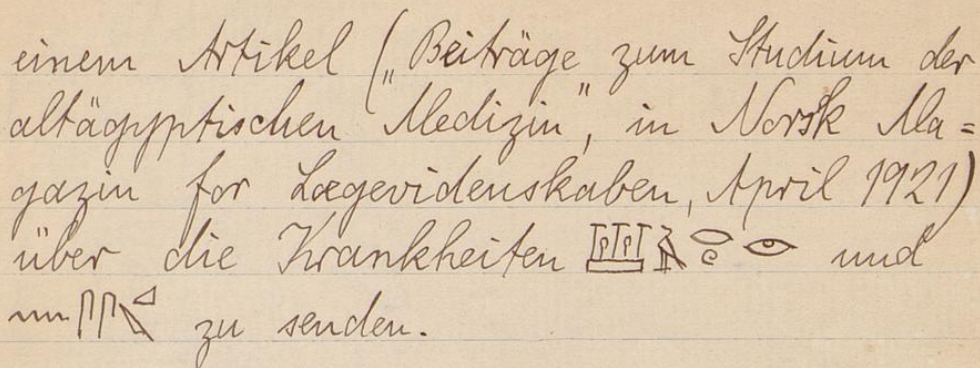 einem Artikel („Beiträge zum Studium der
altägyptischen Medizin“, in Norsk Ma=
gazin for Lægevidenskaben, April 1921)
über die Krankheiten und
zu senden.